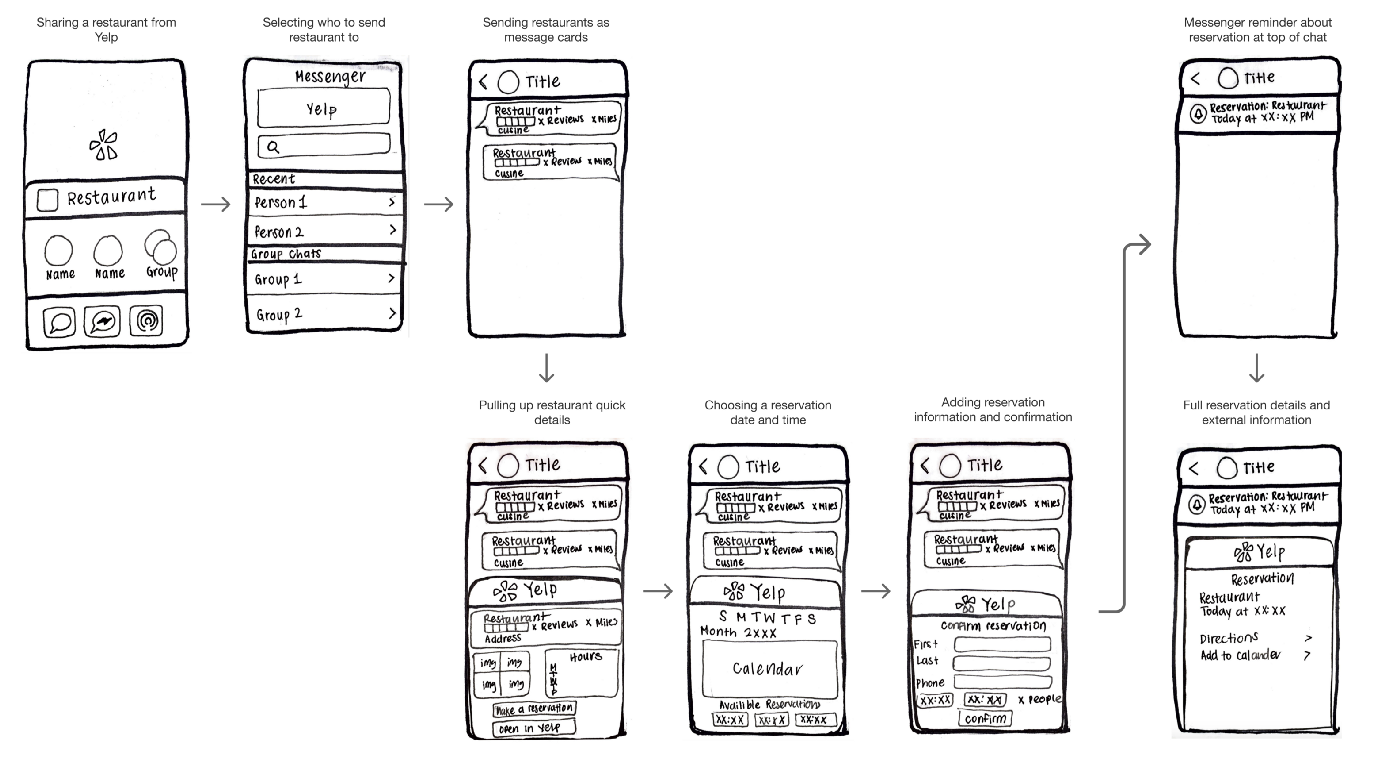 Sharing a restaurant from
Yelp
Restaurant
Name Name Group
Selecting who to send
restaurant to
Messenger
Yelp
Recent
Person 1 >
Person 2 >
Group Chats
Group 1 >
Group 2 >
Sending restaurants as
message cards
< Title
Restaurant
x Reviews x Miles
cusine
Restaurant
x Reviews x Miles
cusine
Pulling up restaurant quick
details
< Title
Restaurant
x Reviews x Miles
cusine
Restaurant
x Reviews x Miles
cusine
Yelp
Restaurant
x Reviews x Miles
Address
img img
img img
Hours
M
T
W
Make a reservation
open in Yelp
Choosing a reservation
date and time
< Title
Restaurant
x Reviews x Miles
cusine
Restaurant
x Reviews x Miles
cusine
Yelp
S M T W T F S
Month 2xxx
Calendar
Availible Reservations
xx:xx xx:xx xx:xx
Adding reservation
information and confirmation
< Title
Restaurant
x Reviews x Miles
cusine
Restaurant
x Reviews x Miles
cusine
Yelp
confirm reservation
First
Last
Phone
xx:xx xx:xx x people
confirm
Messenger reminder about
reservation at top of chat
< Title
Reservation: Restaurant
Today at xx:xx PM
Full reservation details and
external information
< Title
Reservation: Restaurant
Today at xx:xx PM
Yelp
Reservation
Restaurant
Today at xx:xx
Directions >
Add to Calander >